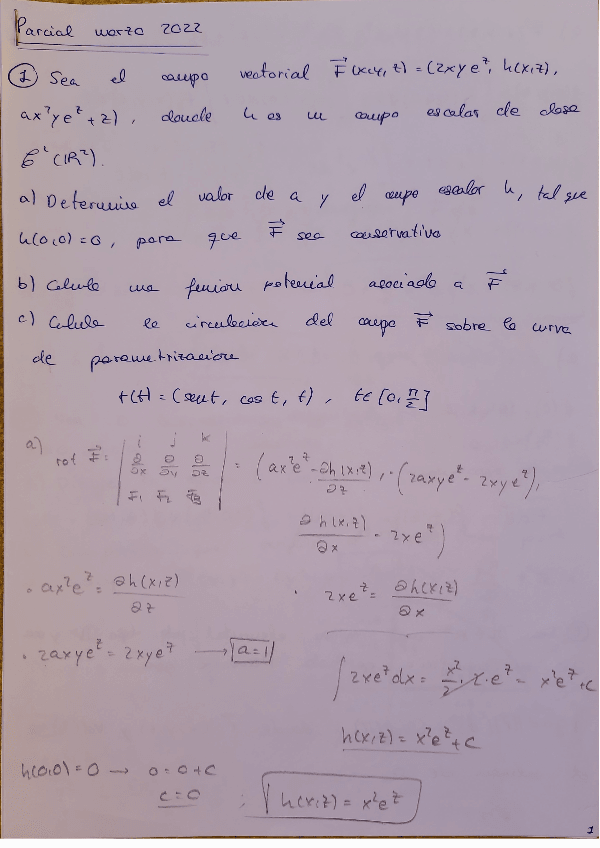 Parcial marzo 2022
① Sea el campo vectorial F⃗(x,y,z) = (2xye^z, h(x,z),
ax²ye^z + z), donde h es un campo escalar de clase
C¹(ℝ²).
a) Determine el valor de a y el campo escalar h, tal que
h(0,0) = 0, para que F⃗ sea conservativo
b) Calcule una funcion potencial asociada a F⃗
c) Calcule la circulación del campo F⃗ sobre la curva
de parametrizacion
r(t) = (sent, cos t, t), t∈[0, π/2]
a)
rot F⃗ = | i j k |
| ∂/∂x ∂/∂y ∂/∂z |
| F₁ F₂ F₃ |
= (ax²e^z - ∂h(x,z)/∂z, -(2axye^z - 2xye^z),
∂h(x,z)/∂x - 2xe^z)
· ax²e^z = ∂h(x,z)/∂z
· 2xe^z = ∂h(x,z)/∂x
· 2axye^z = 2xye^z → a=1
∫2xe^z dx = x²/2 · 2 · e^z = x²e^z + C
h(x,z) = x²e^z + C
h(0,0) = 0 → 0 = 0 + C
C = 0 ; h(x,z) = x²e^z
1